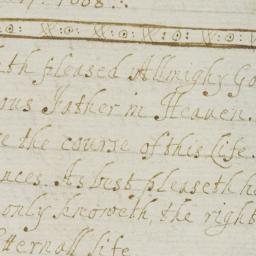 1668.
th pleased Allmighy Go
ous Father in Heaven.
e the course of this Life.
nces. As best pleaseth h
only knoweth, the right
Etternall life